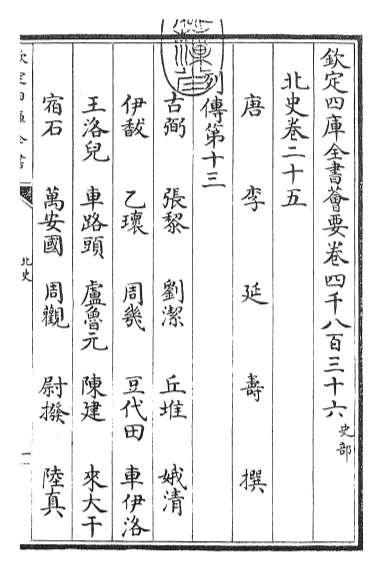 欽定四庫全書薈要卷四千八百三十六 史部
北史卷二十五
唐 李 延 壽 撰
列傳第十三
古弼 張黎 劉潔 丘堆 娥清
伊馛 乙瓌 周幾 豆代田 車伊洛
王洛兒 車路頭 盧魯元 陳建 來大干
宿石 萬安國 周觀 尉撥 陸真
欽定四庫全書
北史
一